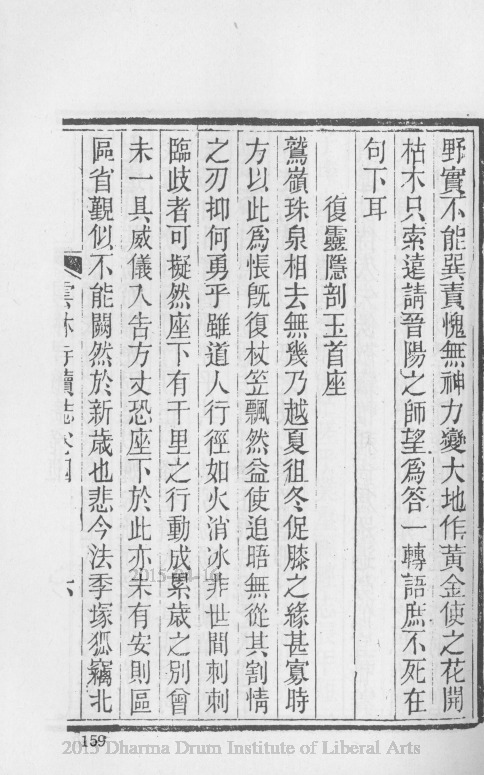 野實不能巽責愧無神力變大地作黃金使之花開
枯木只索遠請晉陽之師望爲答一轉語庶不死在
句下耳
復靈隱剖玉首座
鷲嶺珠泉相去無幾乃越夏徂冬促膝之緣甚寡時
方以此爲悵旣復杖笠飄然益使追晤無從其割情
之刃抑何勇乎雖道人行徑如火消冰非世間刺刺
臨歧者可擬然座下有千里之行動成累歲之別曾
未一具威儀入告方丈恐座下於此亦未有安則區
區省覲似不能闕然於新歲也悲今法季塚狐竊北
雲林寺續誌卷四 六
159
2015-01-16
2015 Dharma Drum Institute of Liberal Arts